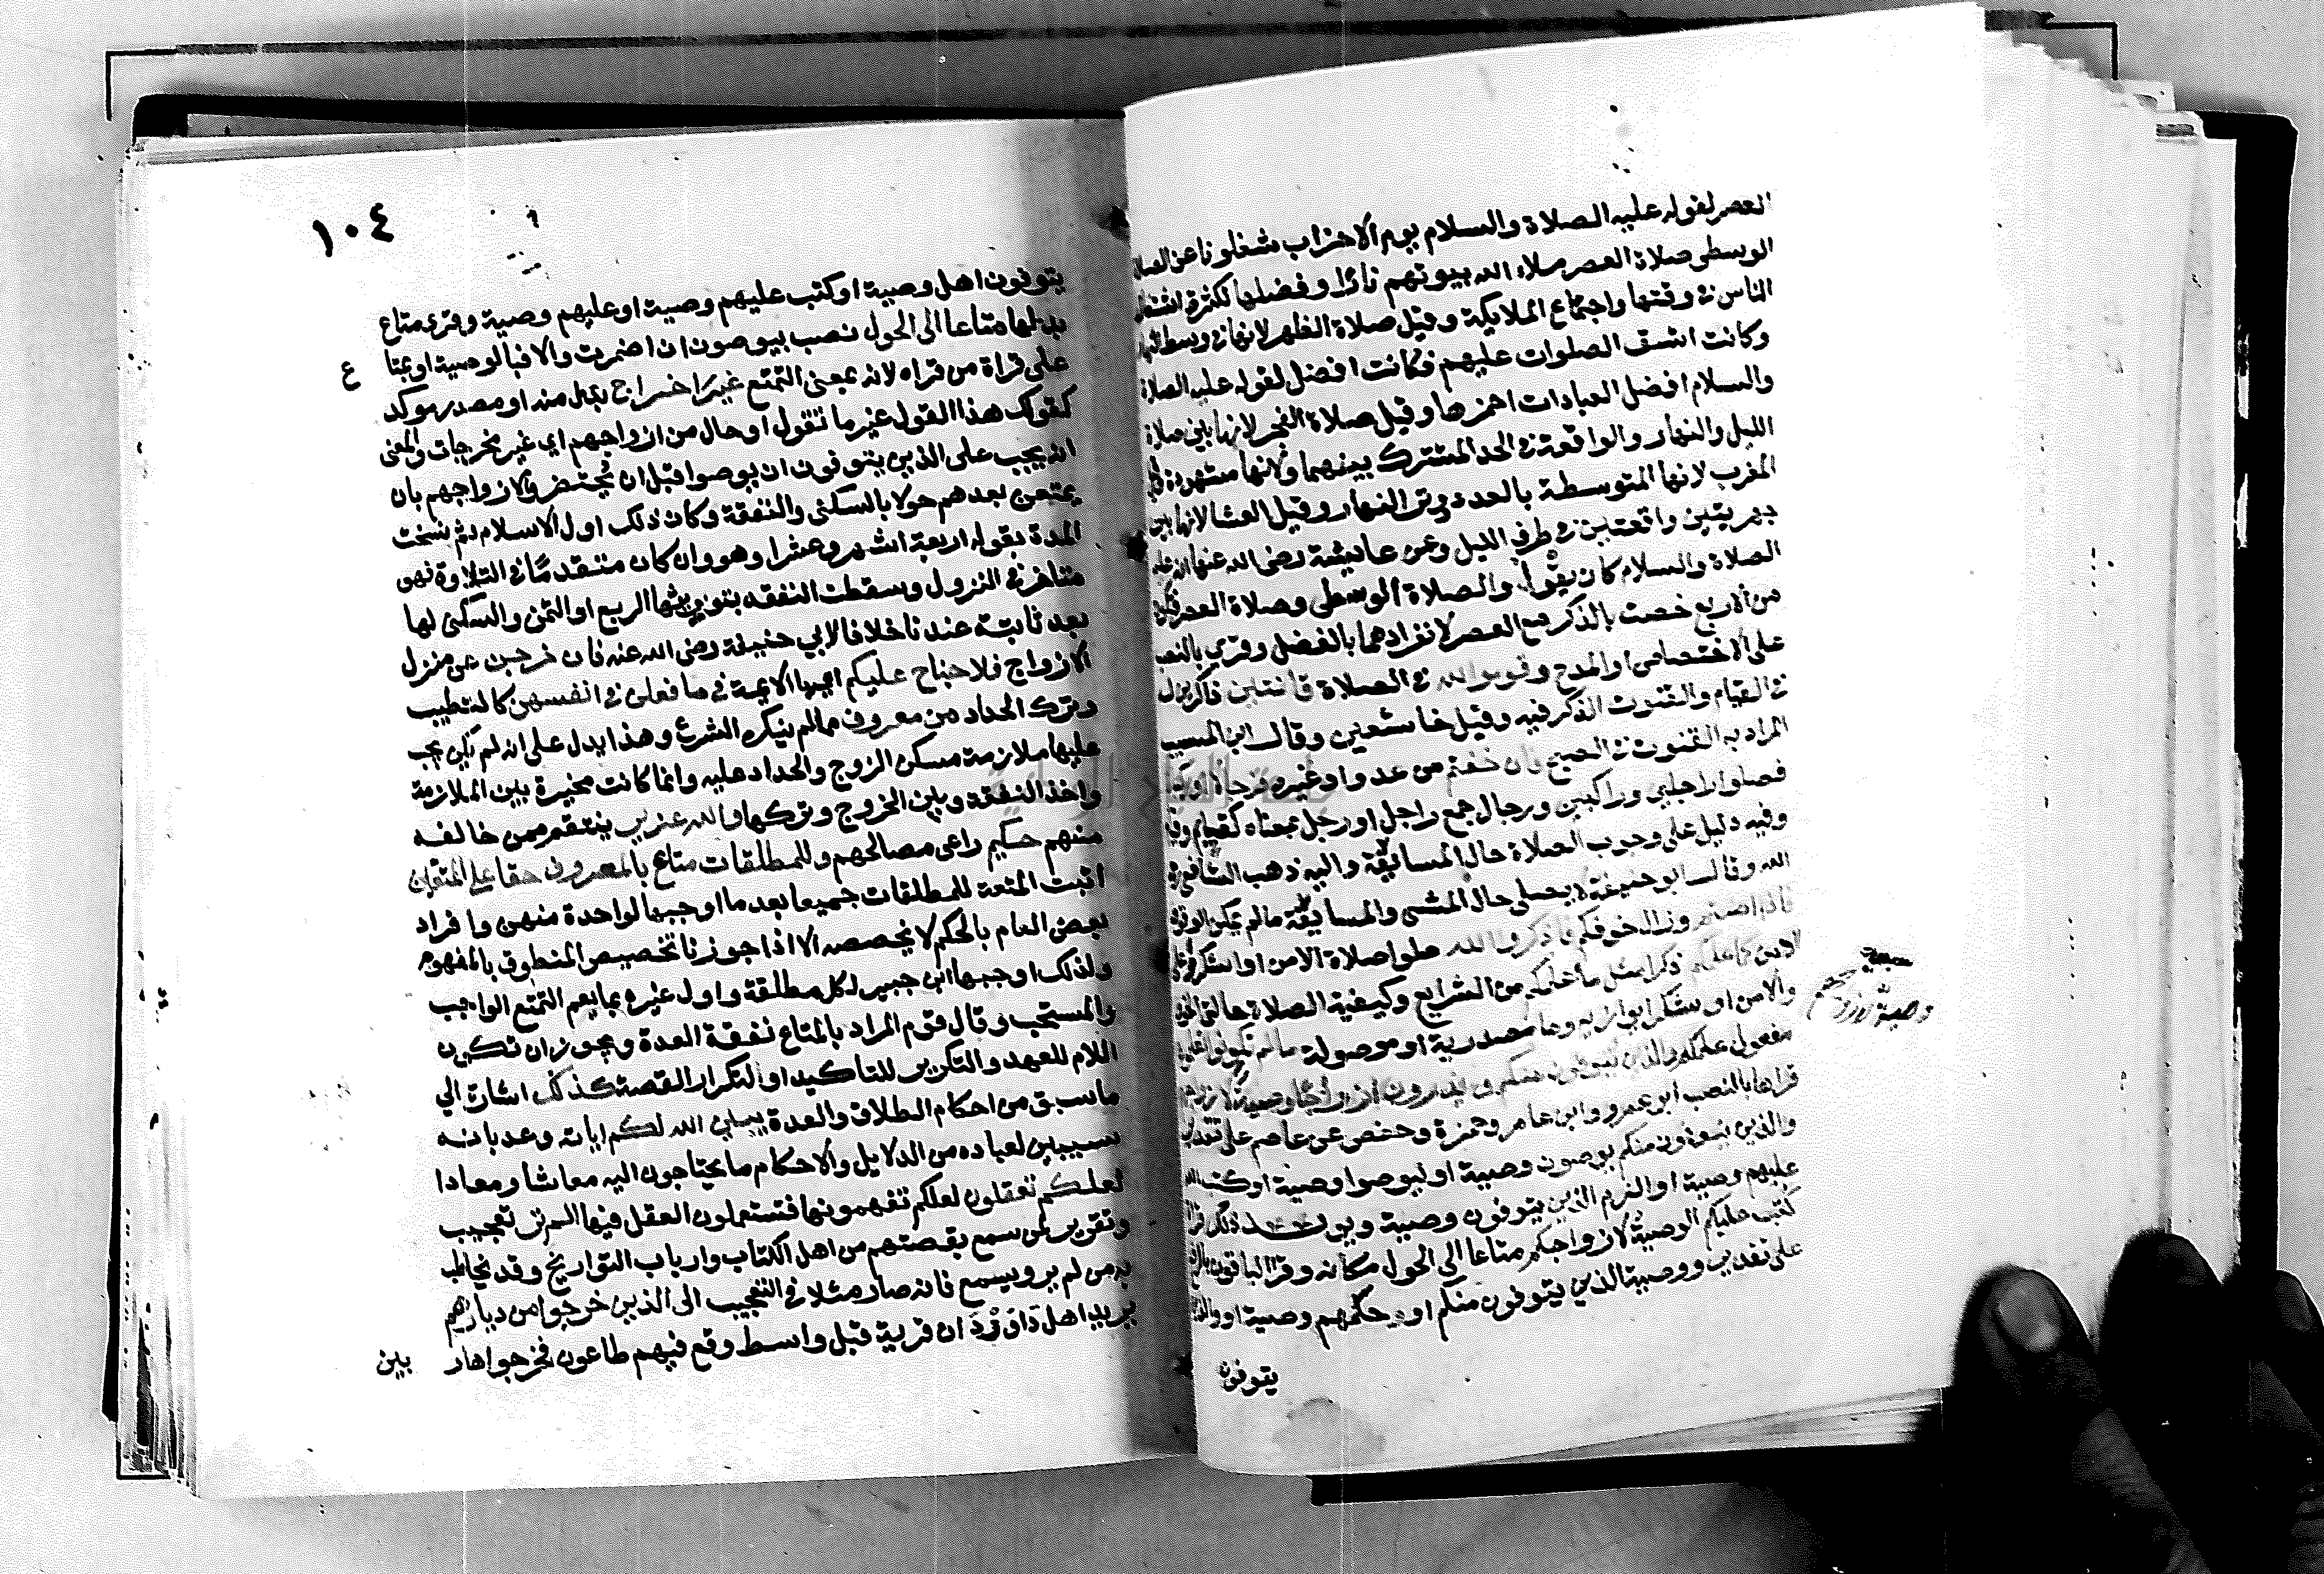 العصر لقوله عليه الصلاة والسلام يوم الاحزاب شغلونا عن الصلاة
الوسطى صلاة العصر ملاء الله بيوتهم نارا وفضلها لكثرة اشتغال
الناس في وقتها واجتماع الملايكة وقيل صلاة الظهر لانها في وسط النهار
وكانت اشق الصلوات عليهم فكانت افضل لقوله عليه الصلاة
والسلام افضل العبادات احمزها وقيل صلاة الفجر لانها بين صلاة
الليل والنهار والواقعة في الحد المشترك بينهما ولانها مشهودة وقيل
المغرب لانها المتوسطة بالعدد وتر النهار وقيل العشا لانها بين
جهريتين واقعتين في طرفي الليل وعن عايشة رضي الله عنها انه عليه
الصلاة والسلام كان يقول والصلاة الوسطى وصلاة العصر فتكون
من الاربع خصت بالذكر مع العصر لانفرادهما بالفضل وقري بالنصب
على الاختصاص او المدح وقوموا لله في الصلاة قانتين ذاكرين له
في القيام والقنوت الذكر فيه وقيل خاشعين وقال ابن المسيب
المراد به القنوت في الصبح فان خفتم من عدو او غيره فرجالا او ركبانا
فصلوا راجلين وراكبين ورجال جمع راجل او رجل بمعناه كقيام وقايم
وفيه دليل على وجوب الصلاة حال المسايفة واليه ذهب الشافعي رضي
الله وقال ابو حنيفة لا يصلى حال المشي والمسايفة ما لم يمكن الوقوف
فاذا امنتم وزال خوفكم فاذكروا الله صلوا صلاة الامن او اشكروه على
الامن كما علمكم ذكرا مثل ما علمكم من الشرايع وكيفية الصلاة حالتي الخوف
والامن او شكرا يوازيه وما مصدرية او موصولة ما لم تكونوا تعلمون
مفعول علمكم والذين يتوفون منكم ويذرون ازواجا وصية لازواجهم
قراها بالنصب ابو عمرو وابن عامر وحمزة وحفص عن عاصم على تقدير
والذين يتوفون منكم يوصون وصية او ليوصوا وصية او كتب الله
عليهم وصية او الزم الذين يتوفون وصية ويويد ذلك قراة
كتب عليكم الوصية لازواجكم متاعا الى الحول مكانه وقرا الباقون بالرفع
على تقدير ووصية الذين يتوفون منكم او وحكمهم وصية او والذين
وصية
يتوفون
١٠٤
يتوفون اهل وصية او كتب عليهم وصية او عليهم وصية وقرى متاع
بدلها متاعا الى الحول نصب بيوصون ان اضمرت والا فبالوصية او بمتا
ع
على قراة من قراه لانه بمعنى التمتع غير اخراج بدل منه او مصدر موكد
كقولك هذا القول غير ما تقول او حال من ازواجهم اي غير مخرجات والمعنى
انه يجب على الذين يتوفون ان يوصوا قبل ان يحتضروا لازواجهم بان
يمتعن بعدهم حولا بالسكنى والنفقة وكان ذلك اول الاسلام ثم نسخت
المدة بقوله اربعة اشهر وعشرا وهو وان كان متقدما في التلاوة فهو
متاخر في النزول وسقطت النفقه بتوريثها الربع او الثمن والسكنى لها
بعد ثابتة عندنا خلافا لابي حنيفة رضي الله عنه فان خرجن عن منزل
الازواج فلا جناح عليكم ايها الايمة في ما فعلن في انفسهن كالتطيب
وترك الحداد من معروف مما لم ينكره الشرع وهذا يدل على انه لم يكن يجب
عليها ملازمة مسكن الزوج والحداد عليه وانما كانت مخيرة بين الملازمة
واخذ النفقة وبين الخروج وتركها والله عزيز ينتقم ممن خالفه
منهم حكيم راعى مصالحهم وللمطلقات متاع بالمعروف حقا على المتقين
اثبت المتعة للمطلقات جميعا بعد ما اوجبها لواحدة منهن وافراد
بعض العام بالحكم لا يخصصه الا اذا جوزنا تخصيص المنطوق بالمفهوم
ولذلك اوجبها ابن جبير لكل مطلقة واول غيره بما يعم التمتع الواجب
والمستحب وقال قوم المراد بالمتاع نفقة العدة ويجوز ان تكون
اللام للعهد والتكرير للتاكيد او لتكرار القصة كذلك اشارة الى
ما سبق من احكام الطلاق والعدة يبين الله لكم اياته وعد بانه
سيبين لعباده من الدلايل والاحكام ما يحتاجون اليه معاشا ومعادا
لعلكم تعقلون لعلكم تفهمونها فتستعملون العقل فيها الم تر تعجيب
وتقرير لمن سمع بقصتهم من اهل الكتاب وارباب التواريخ وقد يخاطب
به من لم ير ويسمع فانه صار مثلا في التعجيب الى الذين خرجوا من ديارهم
يريد اهل داوردان قرية قبل واسط وقع فيهم طاعون فخرجوا هار
بين